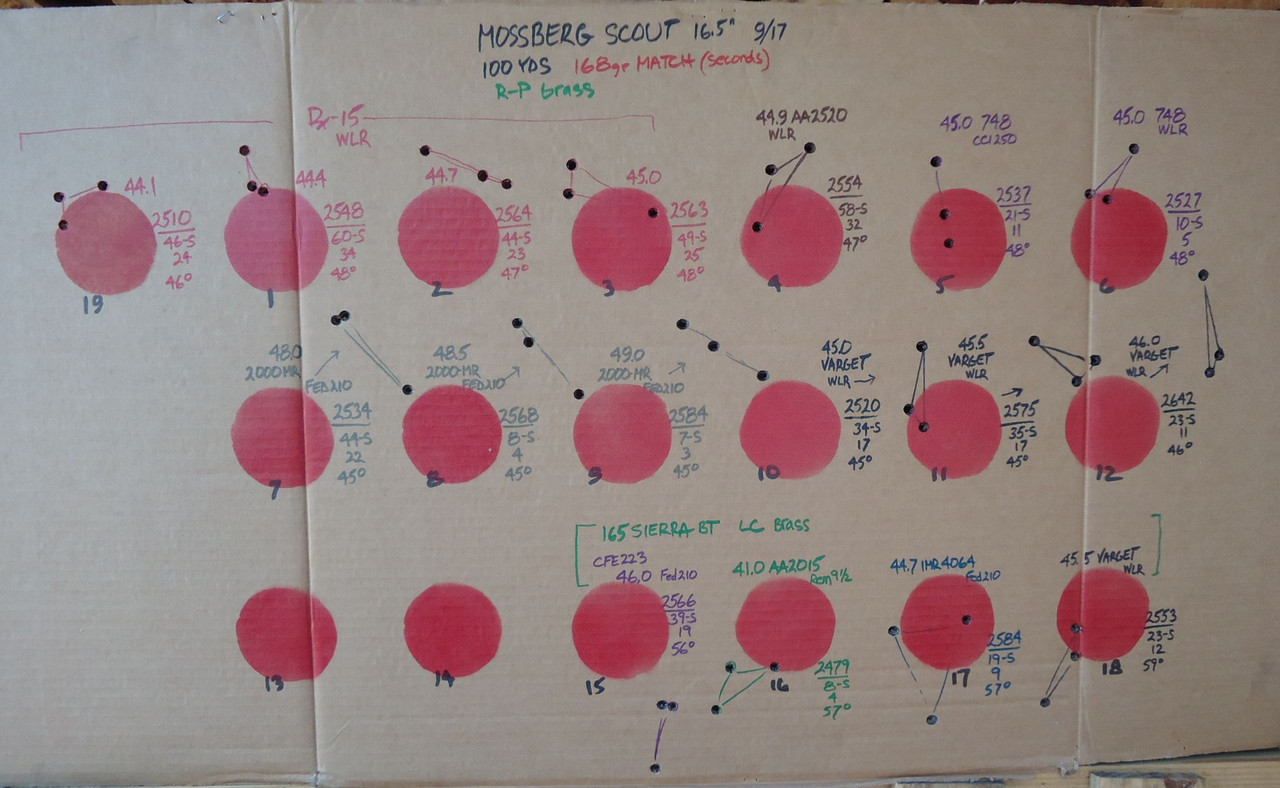 MOSSBERG SCOUT 16.5" 9/17
100 YDS 168gr MATCH (seconds)
R-P brass
WLR
44.1
2510
46-S
24
46°
19
44.4
2548
60-S
34
48°
1
44.7
2564
44-S
23
47°
2
45.0
2563
49-S
25
48°
3
44.9 AA2520
WLR
2554
58-S
32
47°
4
45.0 748
CCI250
2537
21-S
11
48°
5
45.0 748
WLR
2527
10-S
5
48°
6
48.0
2000-MR
FED210
2534
44-S
22
45°
7
48.5
2000-MR
FED210
2568
8-S
4
45°
8
49.0
2000-MR
FED210
2584
7-S
3
45°
9
45.0
VARGET
WLR →
2520
34-S
17
45°
10
45.5
VARGET
WLR
2575
35-S
17
45°
11
46.0
VARGET
WLR
2642
23-S
11
46°
12
165 SIERRA BT LC Brass
13
14
CFE223
46.0 Fed210
2566
39-S
19
56°
15
41.0 AA2015
Rem 9½
2479
8-S
4
57°
16
44.7 IMR4064
Fed210
2584
19-S
9
57°
17
45.5 VARGET
WLR
2553
23-S
12
59°
18